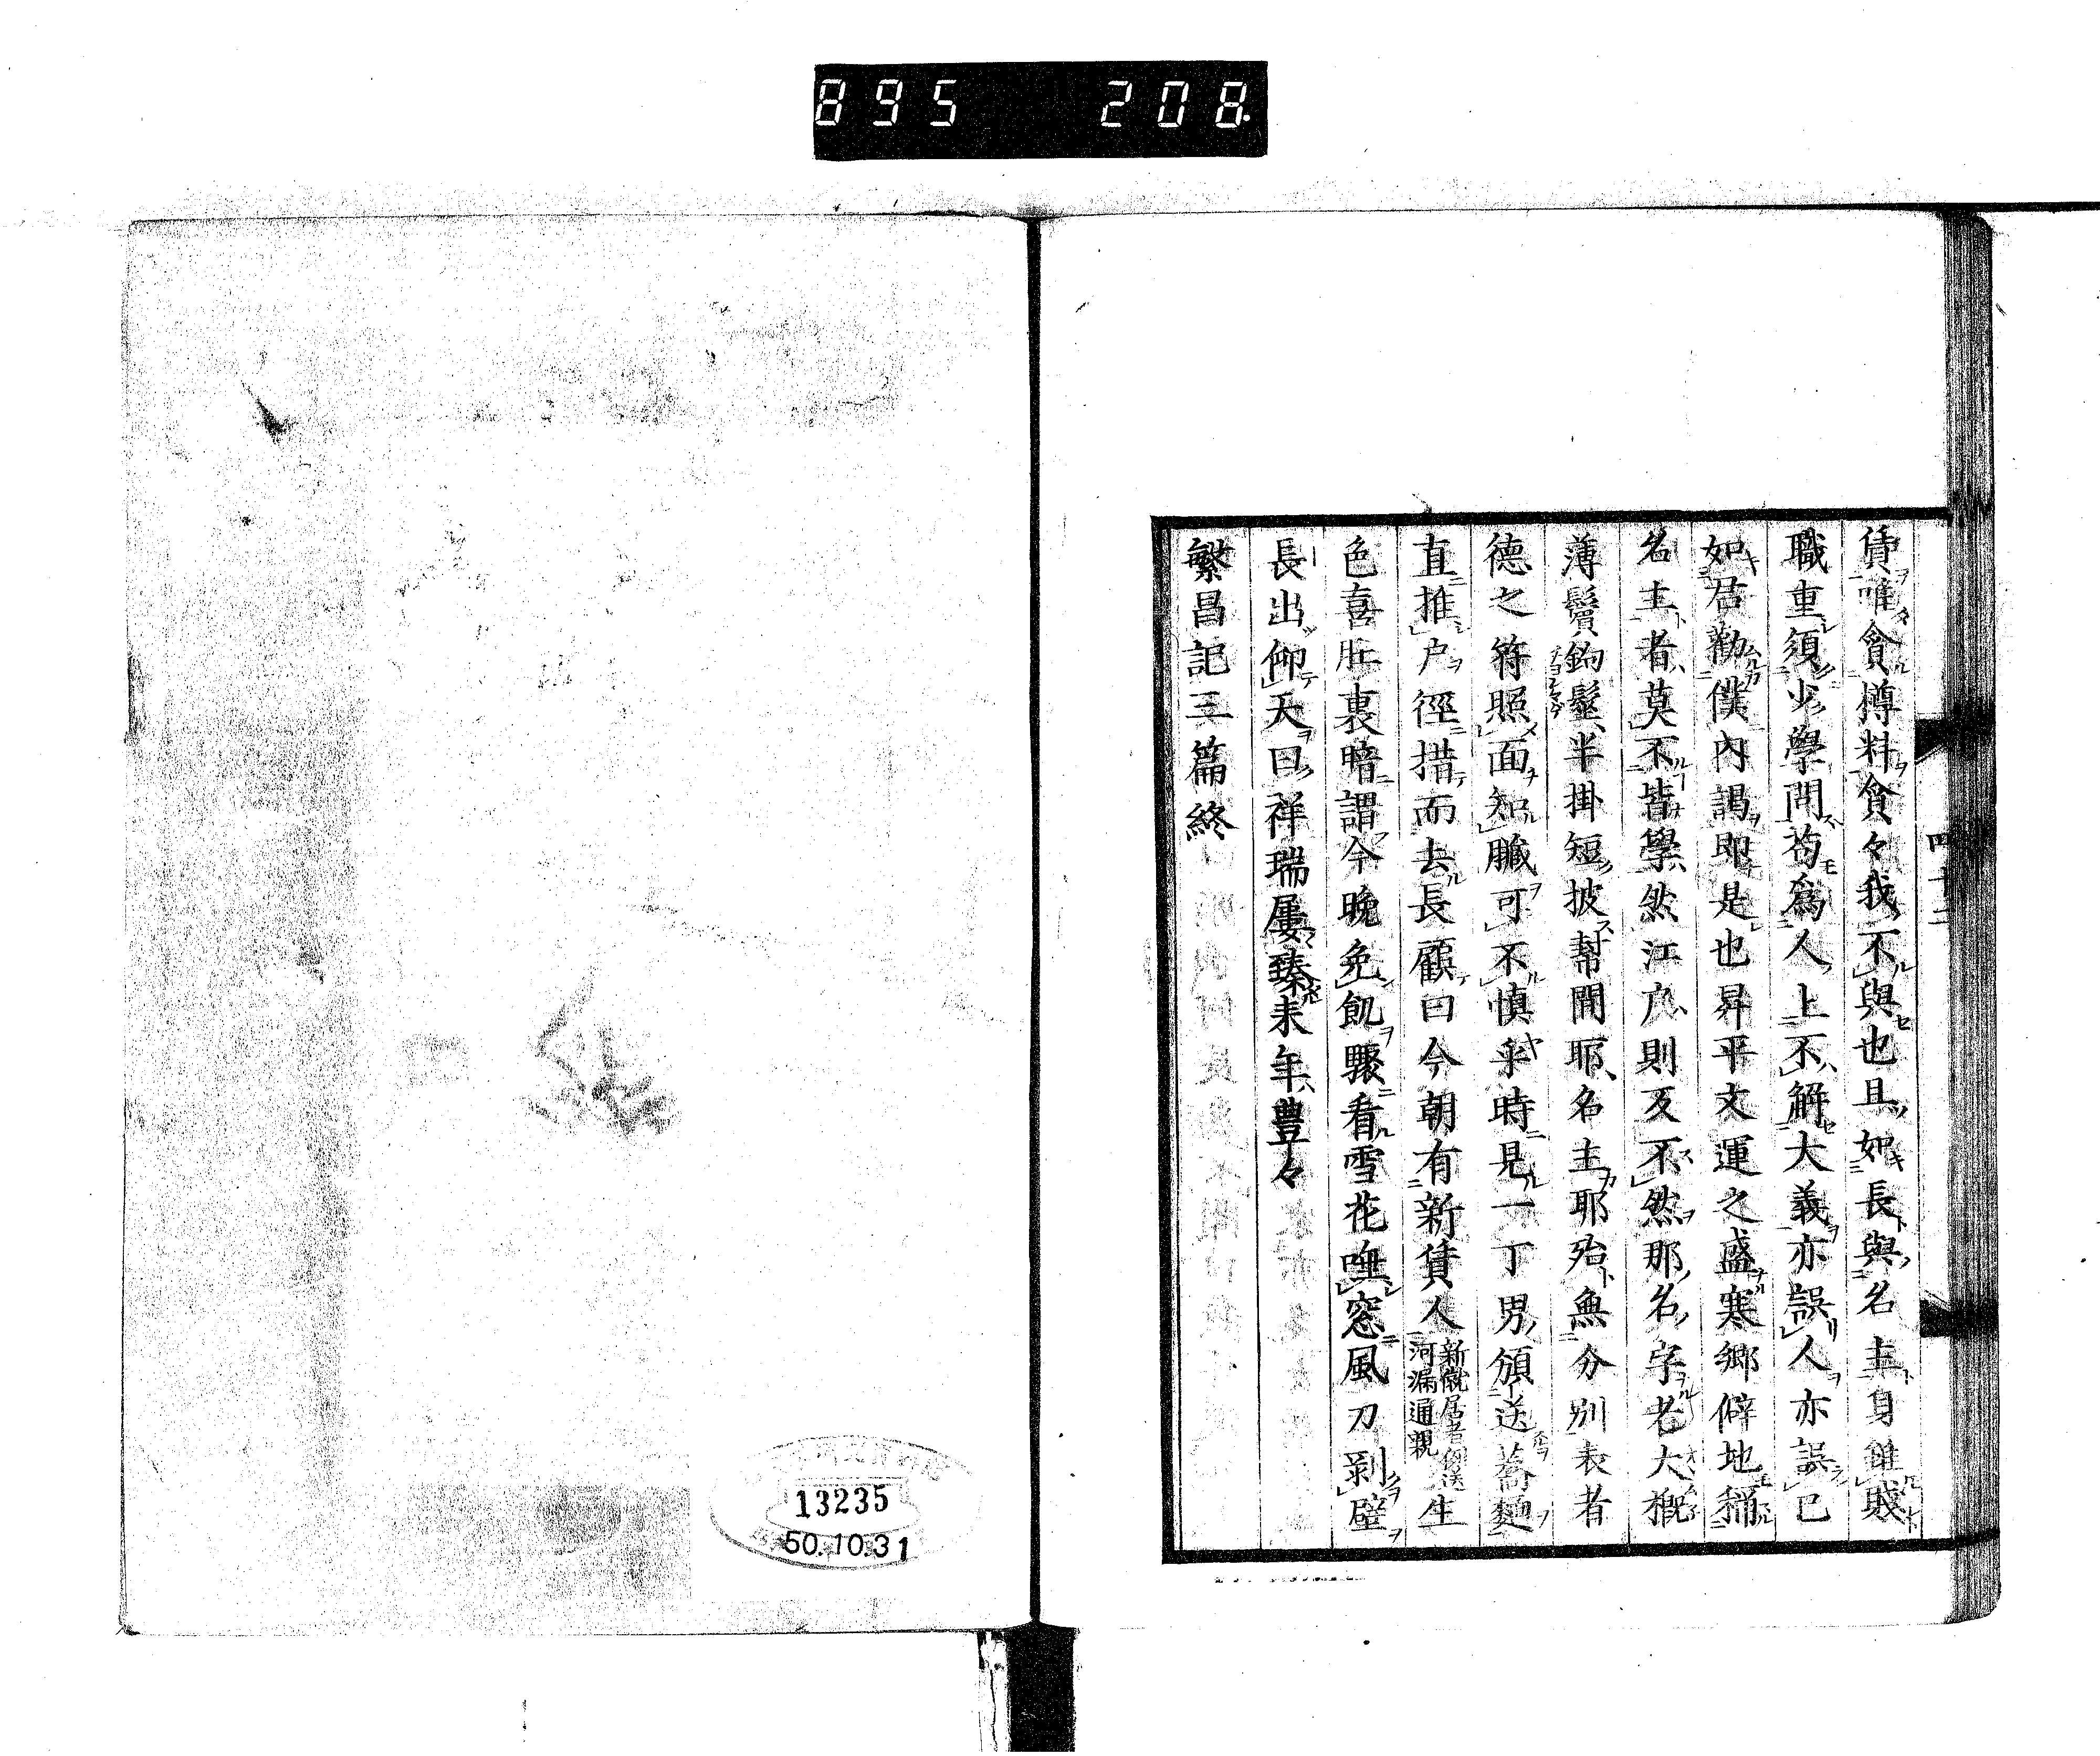 895 208
四十二
賃唯貪摶料貪々我不與也且如長與名主身雖賤
職重須少學問苟爲人上不解大義亦誤人亦誤已
如君勸僕內謁即是也昇平文運之盛寒鄉僻地稱
名主者莫不皆學然江戶則反不然那名字老大概
薄鬢鉤髷半掛短披幇間耶名主耶殆無分別表者
德之符照面知臟可不慎乎時見一丁男頒送蕎麵
直推戶徑措而去長顧曰今朝有新賃人
新僦居者例送
河漏通親
生
色喜肚裏暗謂今晚免飢驟看雪花唾窓風刀剝壁
長出仰天曰祥瑞屢臻来年豊々
繁昌記三篇終
13235
50.10.31